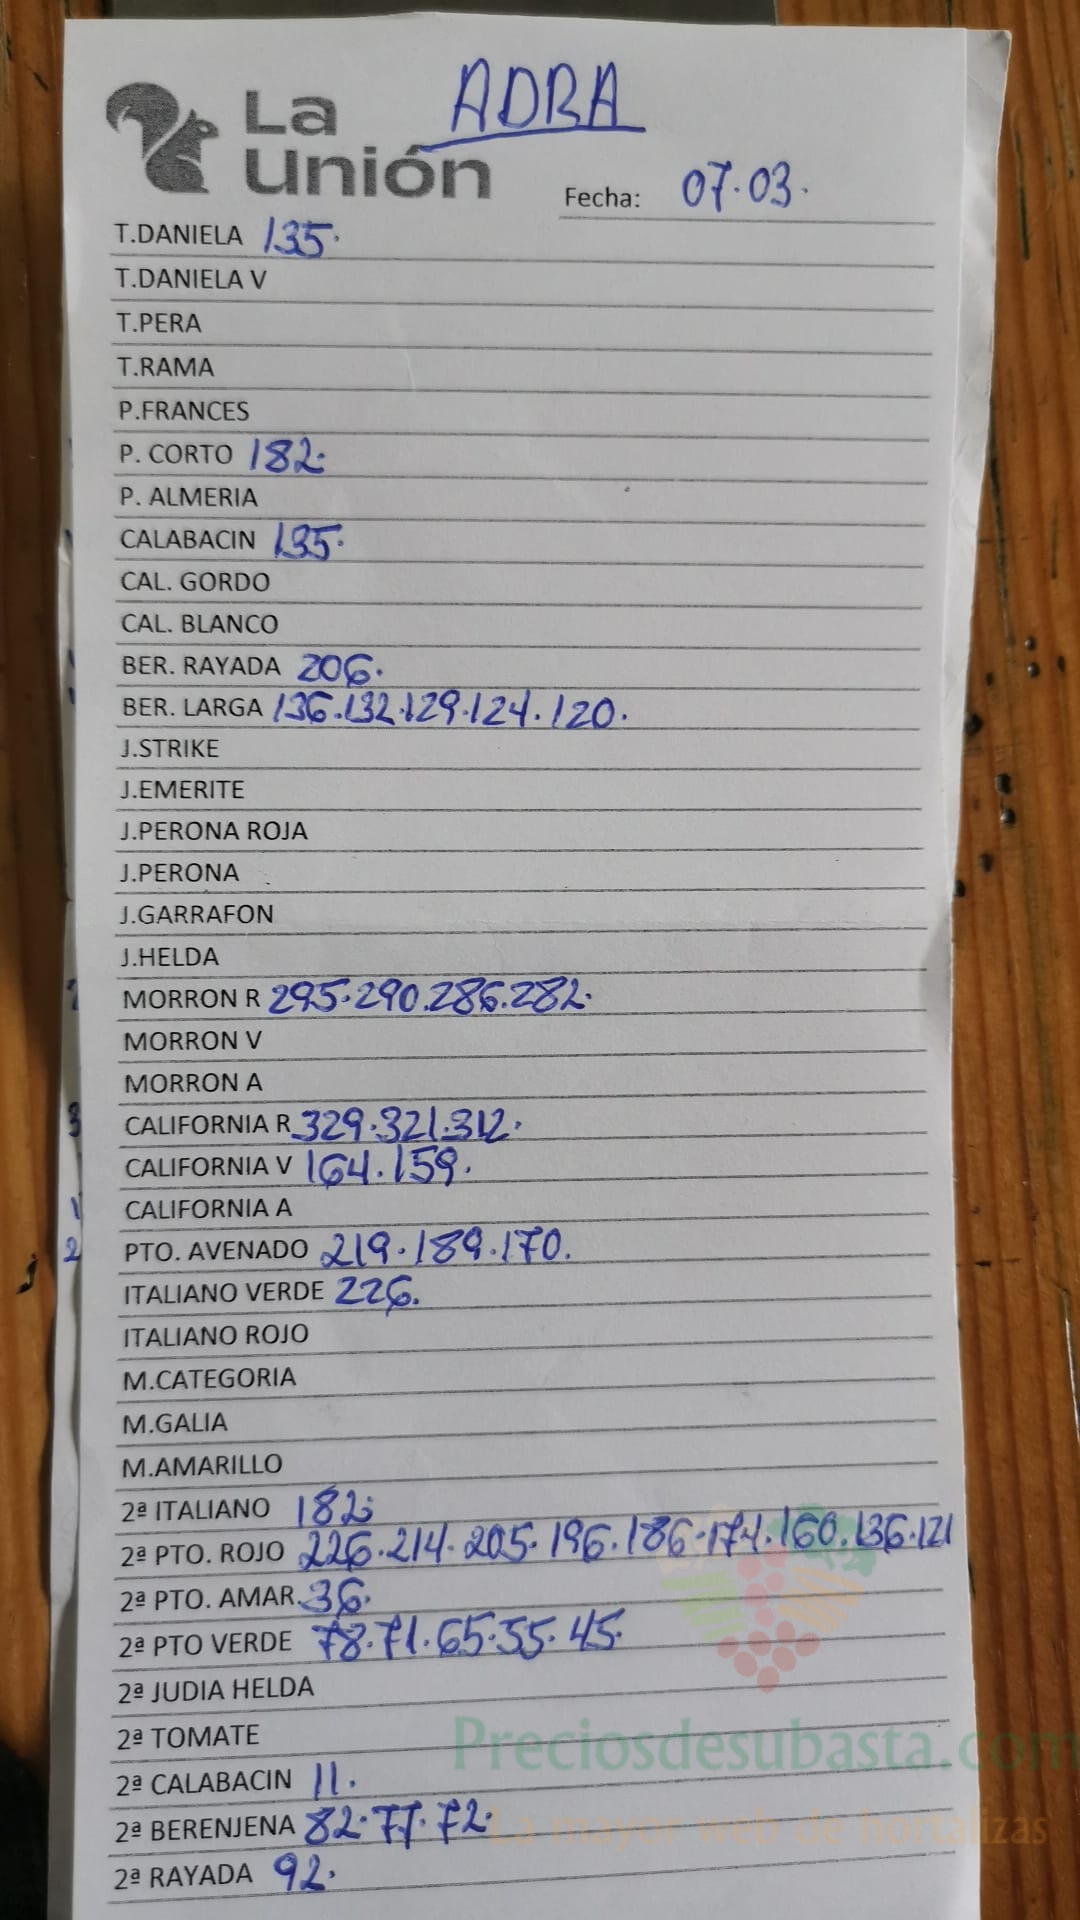 ADRA
La
Unión
Fecha: 07.03.
T.DANIELA 135.
T.DANIELA V
T.PERA
T.RAMA
P.FRANCES
P. CORTO 182.
P. ALMERIA
CALABACIN 135.
CAL. GORDO
CAL. BLANCO
BER. RAYADA 206.
BER. LARGA 136.132.129.124.120.
J.STRIKE
J.EMERITE
J.PERONA ROJA
J.PERONA
J.GARRAFON
J.HELDA
MORRON R 295.290.286.282.
MORRON V
MORRON A
CALIFORNIA R 329.321.312.
CALIFORNIA V 164.159.
CALIFORNIA A
PTO. AVENADO 219.189.170.
ITALIANO VERDE 226.
ITALIANO ROJO
M.CATEGORIA
M.GALIA
M.AMARILLO
2ª ITALIANO 182.
2ª PTO. ROJO 226.214.205.196.186.174.160.136.121
2ª PTO. AMAR. 36.
2ª PTO VERDE 78.71.65.55.45.
2ª JUDIA HELDA
2ª TOMATE
Preciosdesubasta.com
2ª CALABACIN 11.
2ª BERENJENA 82.77.72.
La mayor web de hortalizas
2ª RAYADA 92.